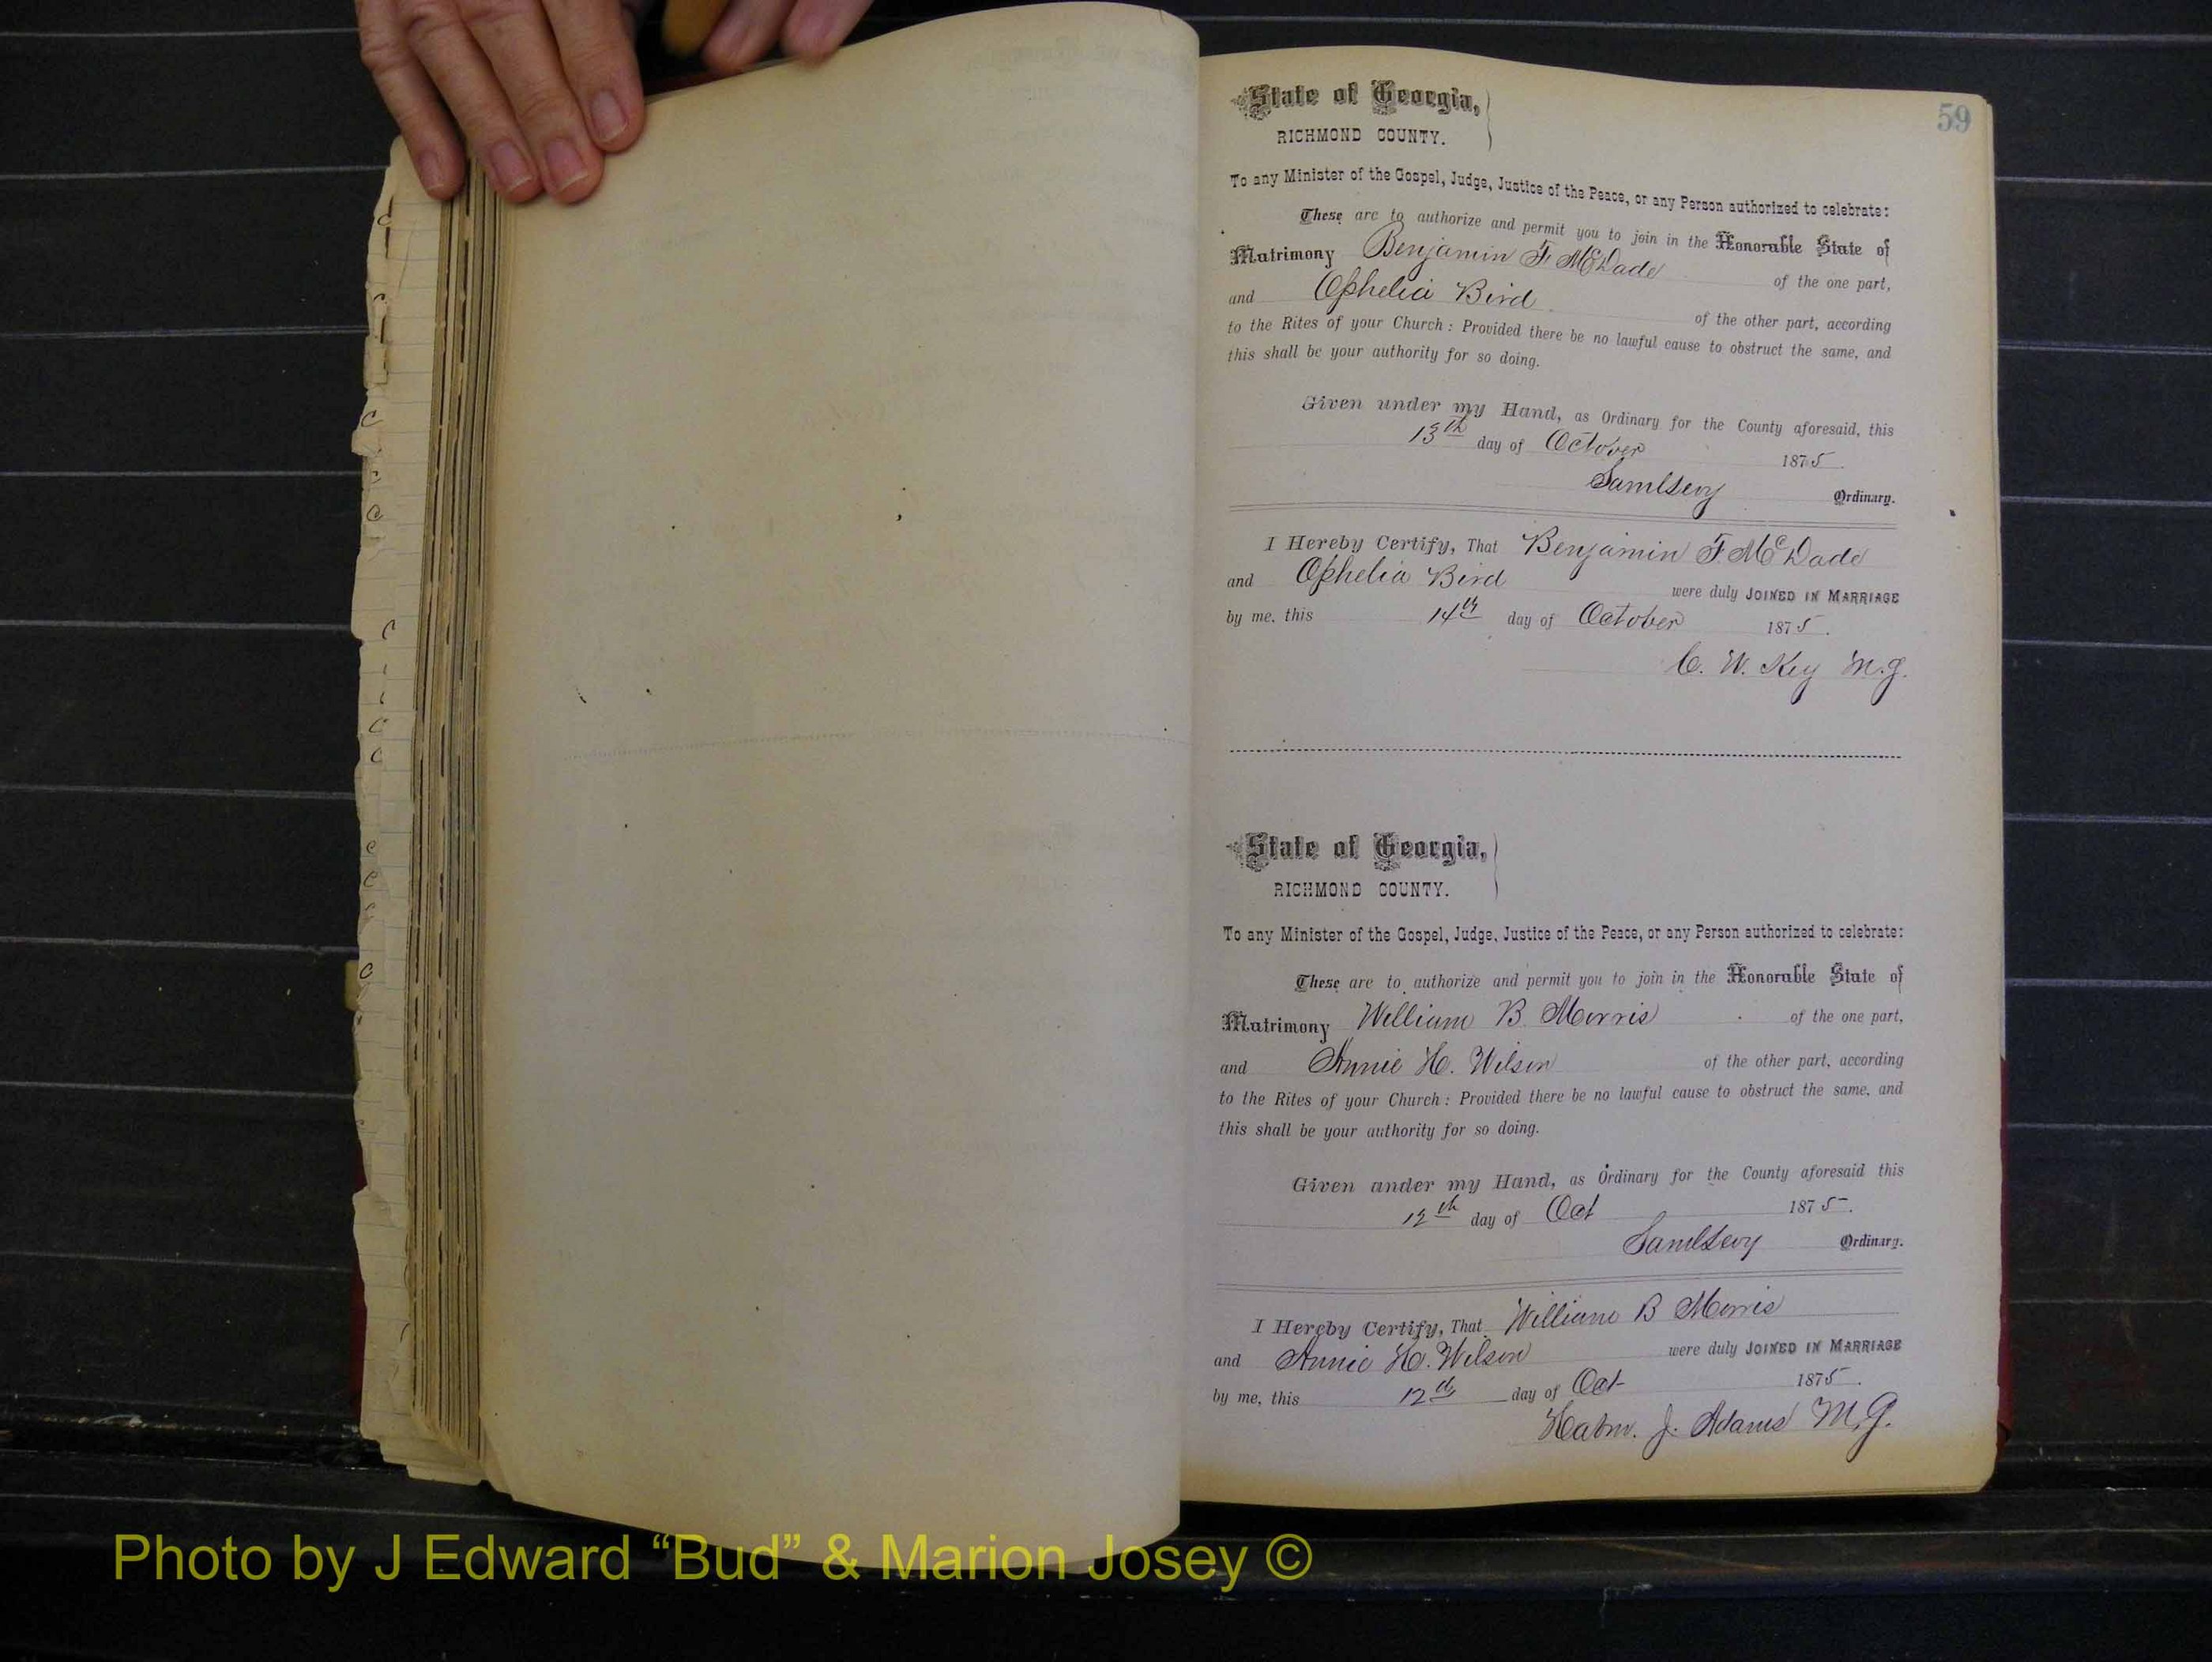 59
State of Georgia,
RICHMOND COUNTY.
To any Minister of the Gospel, Judge, Justice of the Peace, or any Person authorized to celebrate:
These are to authorize and permit you to join in the Honorable State of
Matrimony Benjamin F. McDade of the one part,
and Ophelia Bird of the other part, according
to the Rites of your Church: Provided there be no lawful cause to obstruct the same, and
this shall be your authority for so doing.
Given under my Hand, as Ordinary for the County aforesaid, this
13th day of October 1875.
Saml Levy Ordinary.
I Hereby Certify, That Benjamin F. McDade
and Ophelia Bird were duly JOINED IN MARRIAGE
by me, this 14th day of October 1875.
C. W. Key M.G.
State of Georgia,
RICHMOND COUNTY.
To any Minister of the Gospel, Judge, Justice of the Peace, or any Person authorized to celebrate:
These are to authorize and permit you to join in the Honorable State of
Matrimony William B. Morris of the one part,
and Annie H. Wilson of the other part, according
to the Rites of your Church: Provided there be no lawful cause to obstruct the same, and
this shall be your authority for so doing.
Given under my Hand, as Ordinary for the County aforesaid this
12th day of Oct 1875.
Saml Levy Ordinary.
I Hereby Certify, That William B Morris
and Annie H. Wilson were duly JOINED IN MARRIAGE
by me, this 12th day of Oct 1875.
J. Adams M.G.
Photo by J Edward “Bud” & Marion Josey ©